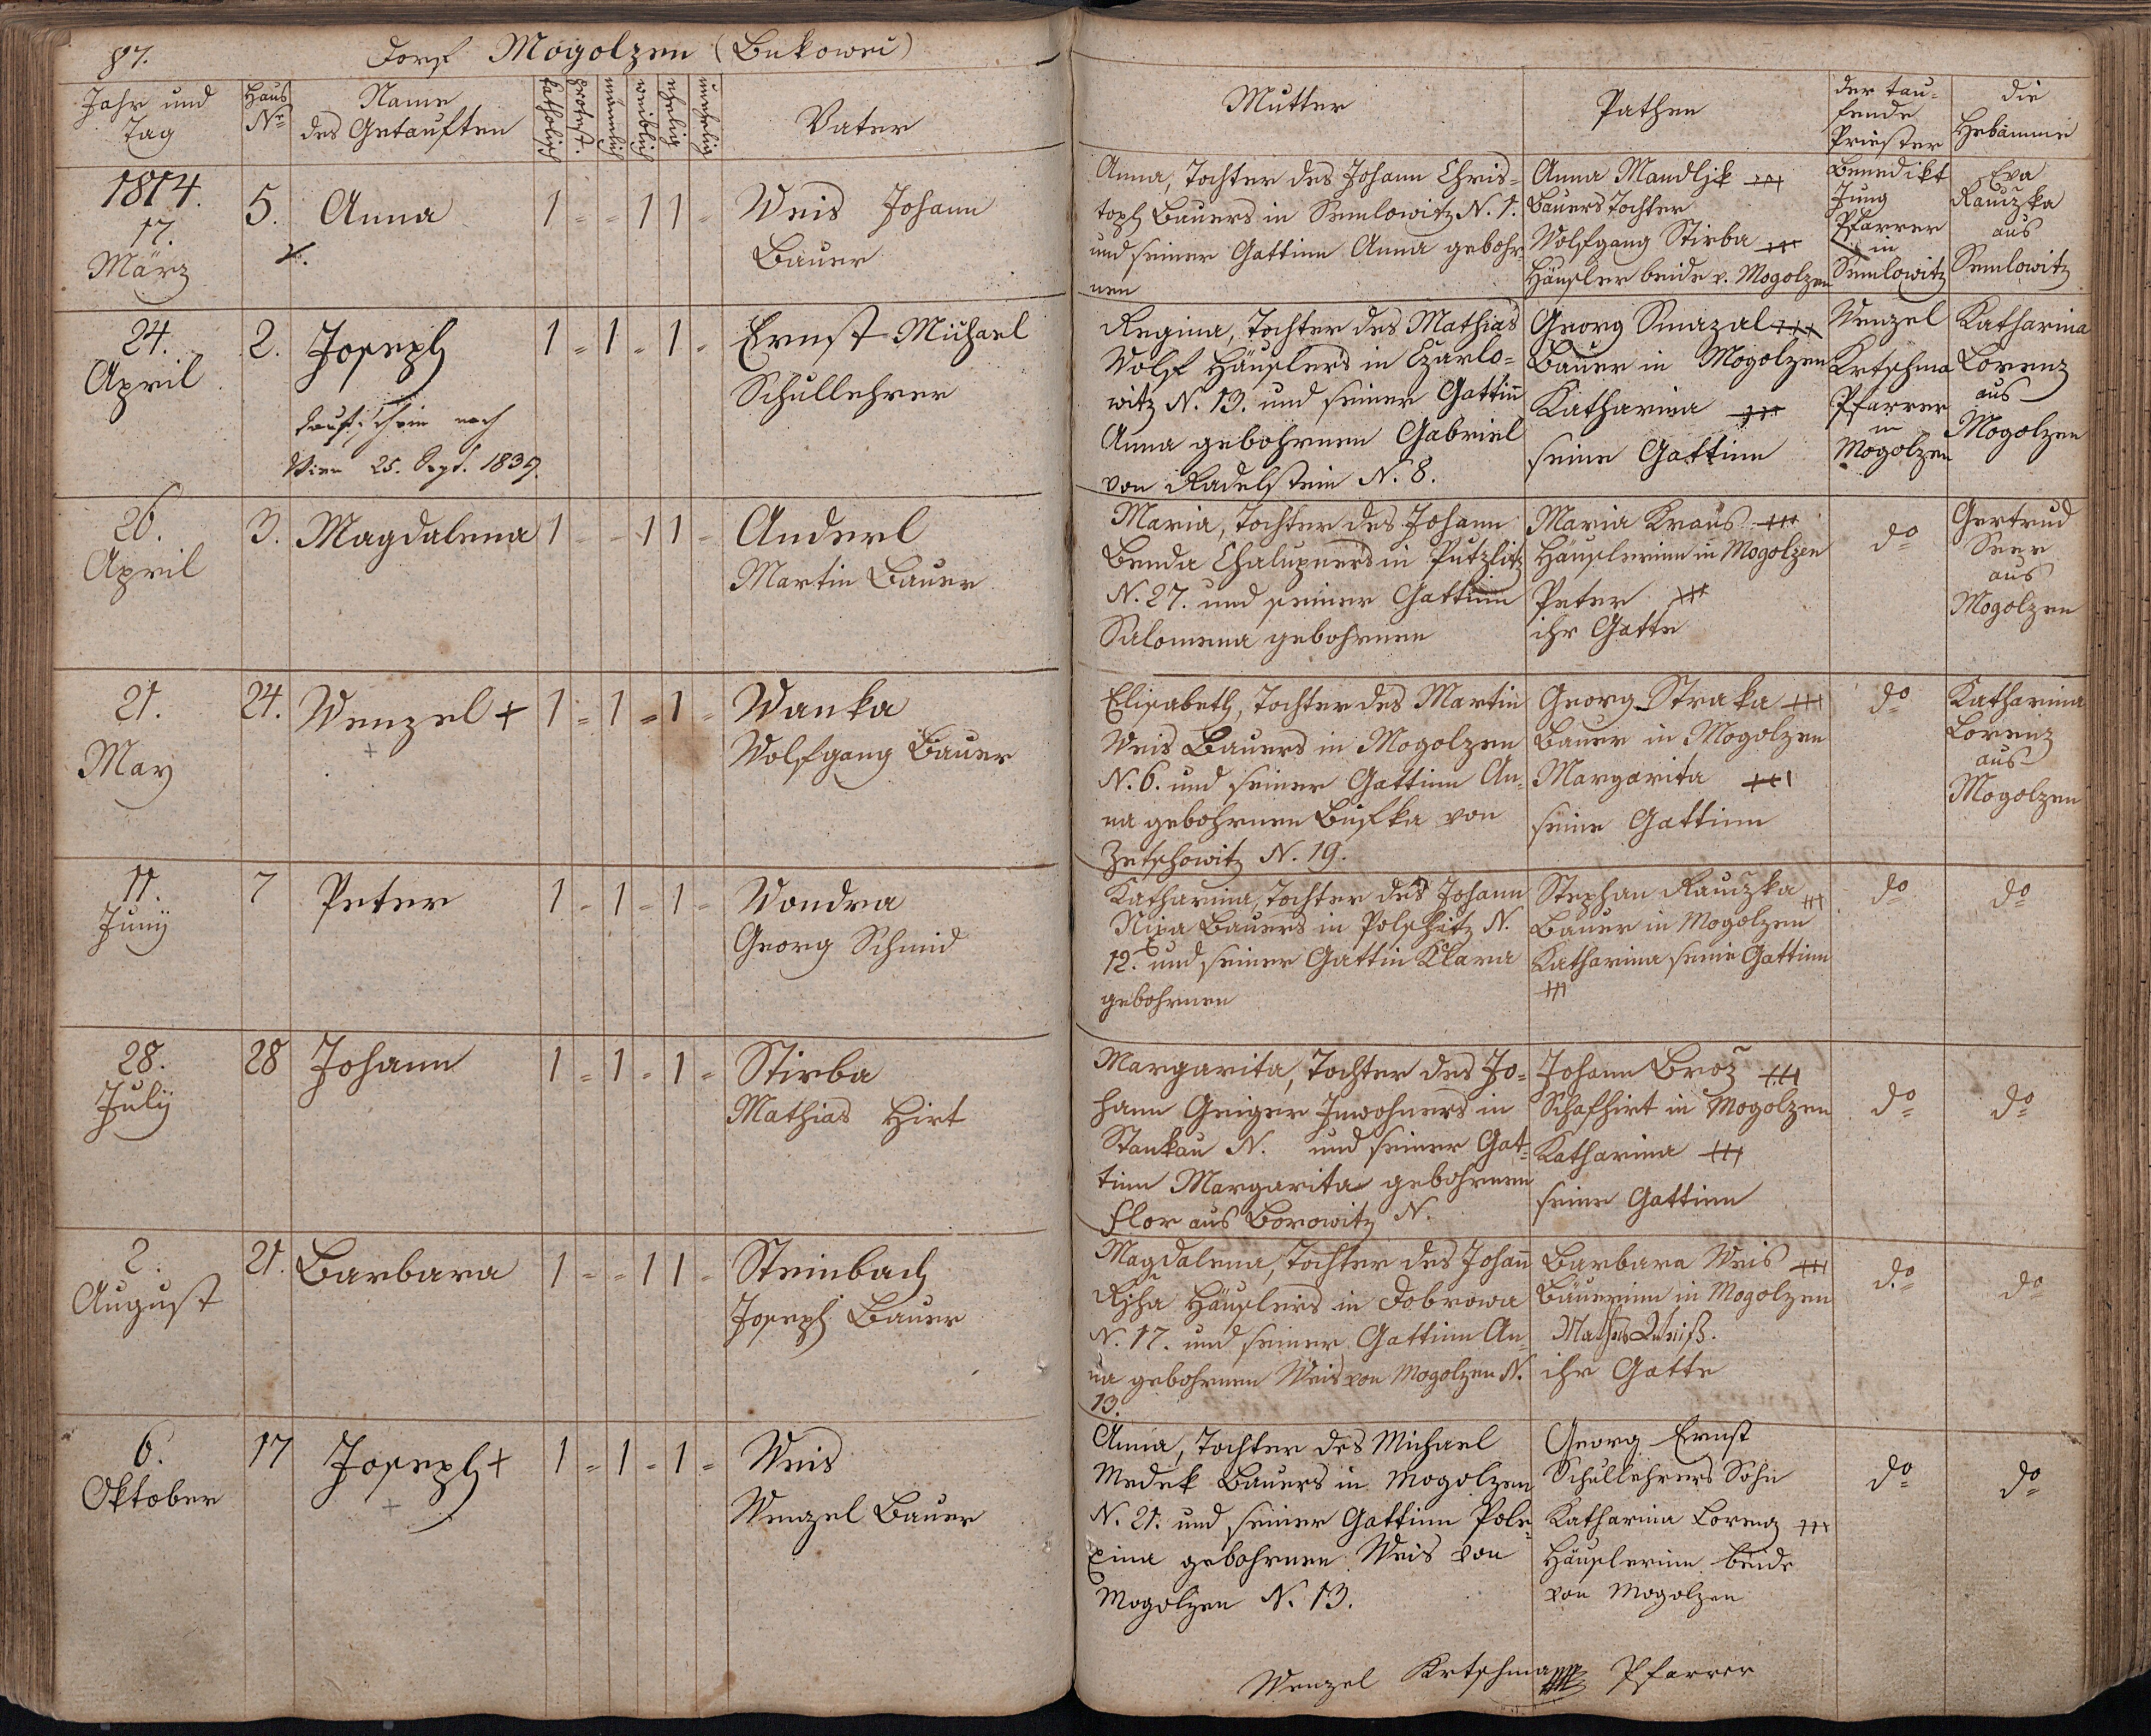 87.
Dorf Mogolzen (Bukowei)
Jahr und Tag
Haus Nro
Name des Getauften
katholisch
protest.
männlich
weiblich
ehelig
unehelig
Vater
Mutter
Pathen
der taufende Priester
die Hebamme
1814.
17.
März
5.
Anna
1 - - 1 1 -
Weis Johann
Bauer
Anna, Tochter des Johann Chris=
toph Bauers in Semlowitz N. 1.
und seiner Gattinn Anna gebohr
nen
Anna Mandljk +++
Bauers Tochter
Wolfgang Stirba +++
Häusler beide v. Mogolzen
Benedikt
Jung
Pfarrer
in
Semlowitz
Eva
Rauczka
aus
Semlowitz
24.
April
2.
Joseph
Taufschein nach
Wien 25. Sept. 1839.
1 - 1 - 1 -
Ernst Michael
Schullehrer
Regina, Tochter des Mathias
Wolf Häuslers in Czarlo=
witz N. 13. und seiner Gattin
Anna gebohrnen Gabriel
von Radelstein N. 8.
Georg Smazal +++
Bauer in Mogolzen
Katharina +++
seine Gattinn
Wenzel
Krtschma
Pfarrer
in
Mogolzen
Katharina
Lorenz
aus
Mogolzen
26.
April
3.
Magdalena
1 - - 1 1 -
Anderl
Martin Bauer
Maria, Tochter des Johann
Benda Chalupners in Putzlitz
N. 27. und seiner Gattinn
Salomena gebohrnen
Maria Kraus +++
Häuslerinn in Mogolzen
Peter +++
ihr Gatte
do
Gertrud
Seer
aus
Mogolzen
21.
May
24.
Wenzel +
1 - 1 - 1 -
Wanka
Wolfgang Bauer
Elisabeth, Tochter des Martin
Weis Bauers in Mogolzen
N. 6. und seiner Gattinn An=
na gebohrnen Busska von
Zetschowitz N. 19.
Georg Straka +++
Bauer in Mogolzen
Margarita +++
seine Gattinn
do
Katharina
Lorenz
aus
Mogolzen
11.
Juny
7
Peter
1 - 1 - 1 -
Wondra
Georg Schmid
Katharina, Tochter des Johann
Nixa Bauers in Polschitz N.
12. und seiner Gattin Klara
gebohrnen
Stephan Rauczka +++
Bauer in Mogolzen
Katharina seine Gattinn
+++
do
do
28.
July
28
Johann
1 - 1 - 1 -
Stirba
Mathias Hirt
Margarita, Tochter des Jo=
hann Geiger Inwohners in
Stankau N. und seiner Gat=
tinn Margarita gebohrnen
Flor aus Borowitz N.
Johann Broz +++
Schafhirt in Mogolzen
Katharina +++
seine Gattinn
do
do
2.
August
21.
Barbara
1 - - 1 1 -
Steinbach
Joseph Bauer
Magdalena, Tochter des Johann
Rjha Häuslers in Dobrowa
N. 17. und seiner Gattinn An
na gebohrnen Weis von Mogolzen N.
13.
Barbara Weis +++
Bäuerinn in Mogolzen
Mathes Weiß.
ihr Gatte
do
do
6.
Oktober
17
Joseph +
1 - 1 - 1 -
Weis
Wenzel Bauer
Anna, Tochter des Michael
Medek Bauers in Mogolzen
N. 21. und seiner Gattinn Pole=
xina gebohrnen Weis von
Mogolzen N. 13.
Georg Ernst
Schullehrers Sohn
Katharina Lorenz +++
Häuslerinn beide
von Mogolzen
do
do
Wenzel Krtschma Pfarrer